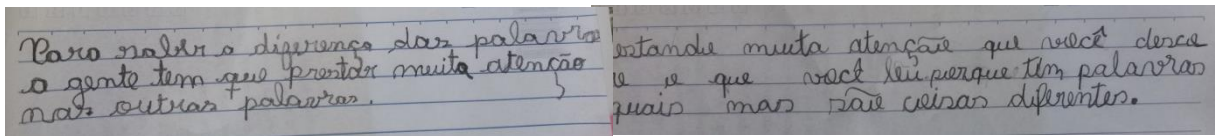 Para saber a diferença das palavras
a gente tem que prestar muita atenção
nas outras palavras.
estando muita atenção que você
e o que você leu porque tem palavras
guais mas são coisas diferentes.